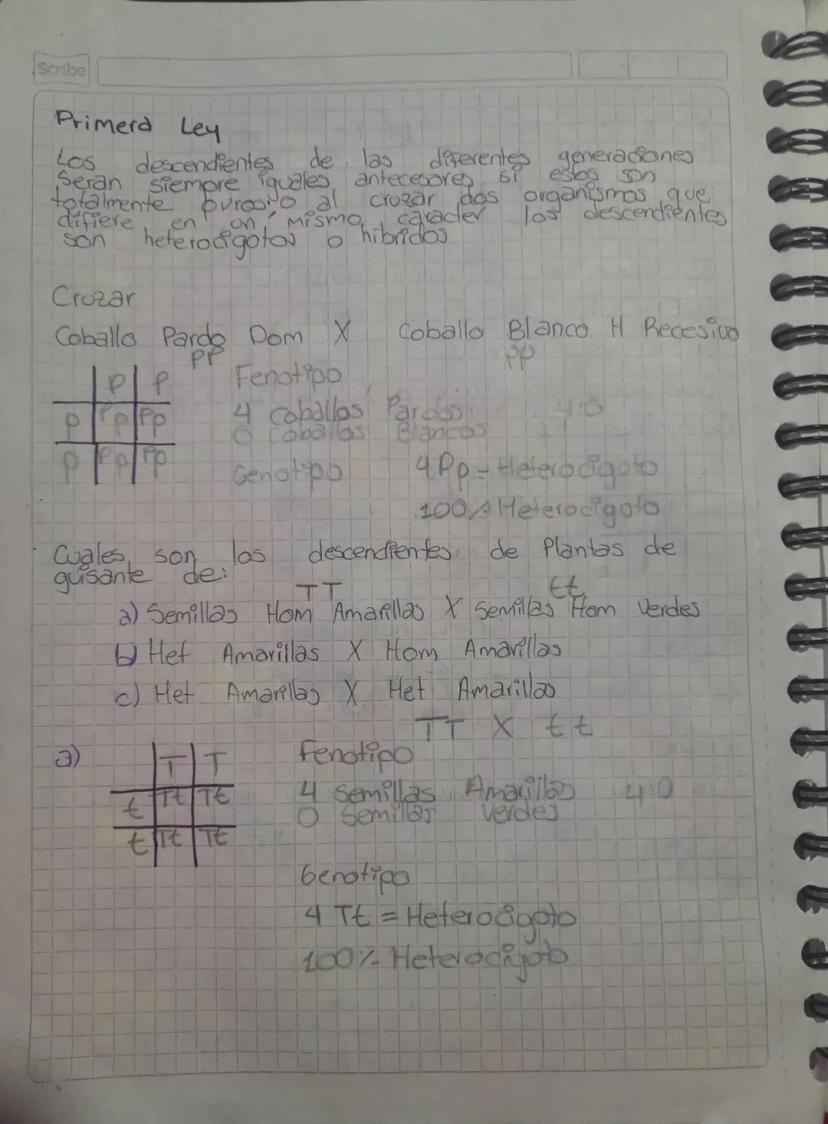 Scribe
Primera Ley
Los descendientes de las diferentes generaciones
seran siempre iguales antecesores si estos son
totalmente puros o al cruzar dos organismos que
difiere en un mismo caracter los descendientes
son heterocigotos o hibridos
Cruzar
Caballo Pardo Dom X Caballo Blanco H Recesivo
PP pp
P P Fenotipo
p Pp Pp 4 caballos Pardos 4:0
0 caballos Blancos
p Pp Pp Genotipo 4 Pp = Heterocigoto
100% Heterocigoto
Cuales son los descendientes de Plantas de
guisante de:
TT tt
a) Semillas Hom Amarillas X Semillas Hom verdes
b) Het Amarillas X Hom Amarillas
c) Het Amarillas X Het Amarillas
TT X tt
a) T T Fenotipo
t Tt Tt 4 semillas Amarillas 4:0
0 semillas verdes
t Tt Tt
Genotipo
4 Tt = Heterocigoto
100% Heterocigoto